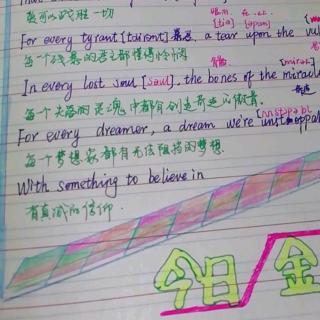 爱可以战胜一切
For every tyrant [tairənt] 暴君, a tear upon the vul
每个残暴的君主都懂得怜悯
In every lost soul [saul], the bones of the miracle
每个失落的灵魂中都有创造奇迹的傲骨.
For every dreamer, a dream we're unstoppabl
每个梦想家都有无法阻挡的梦想
With something to believe in
有真诚的信仰.
今日 金